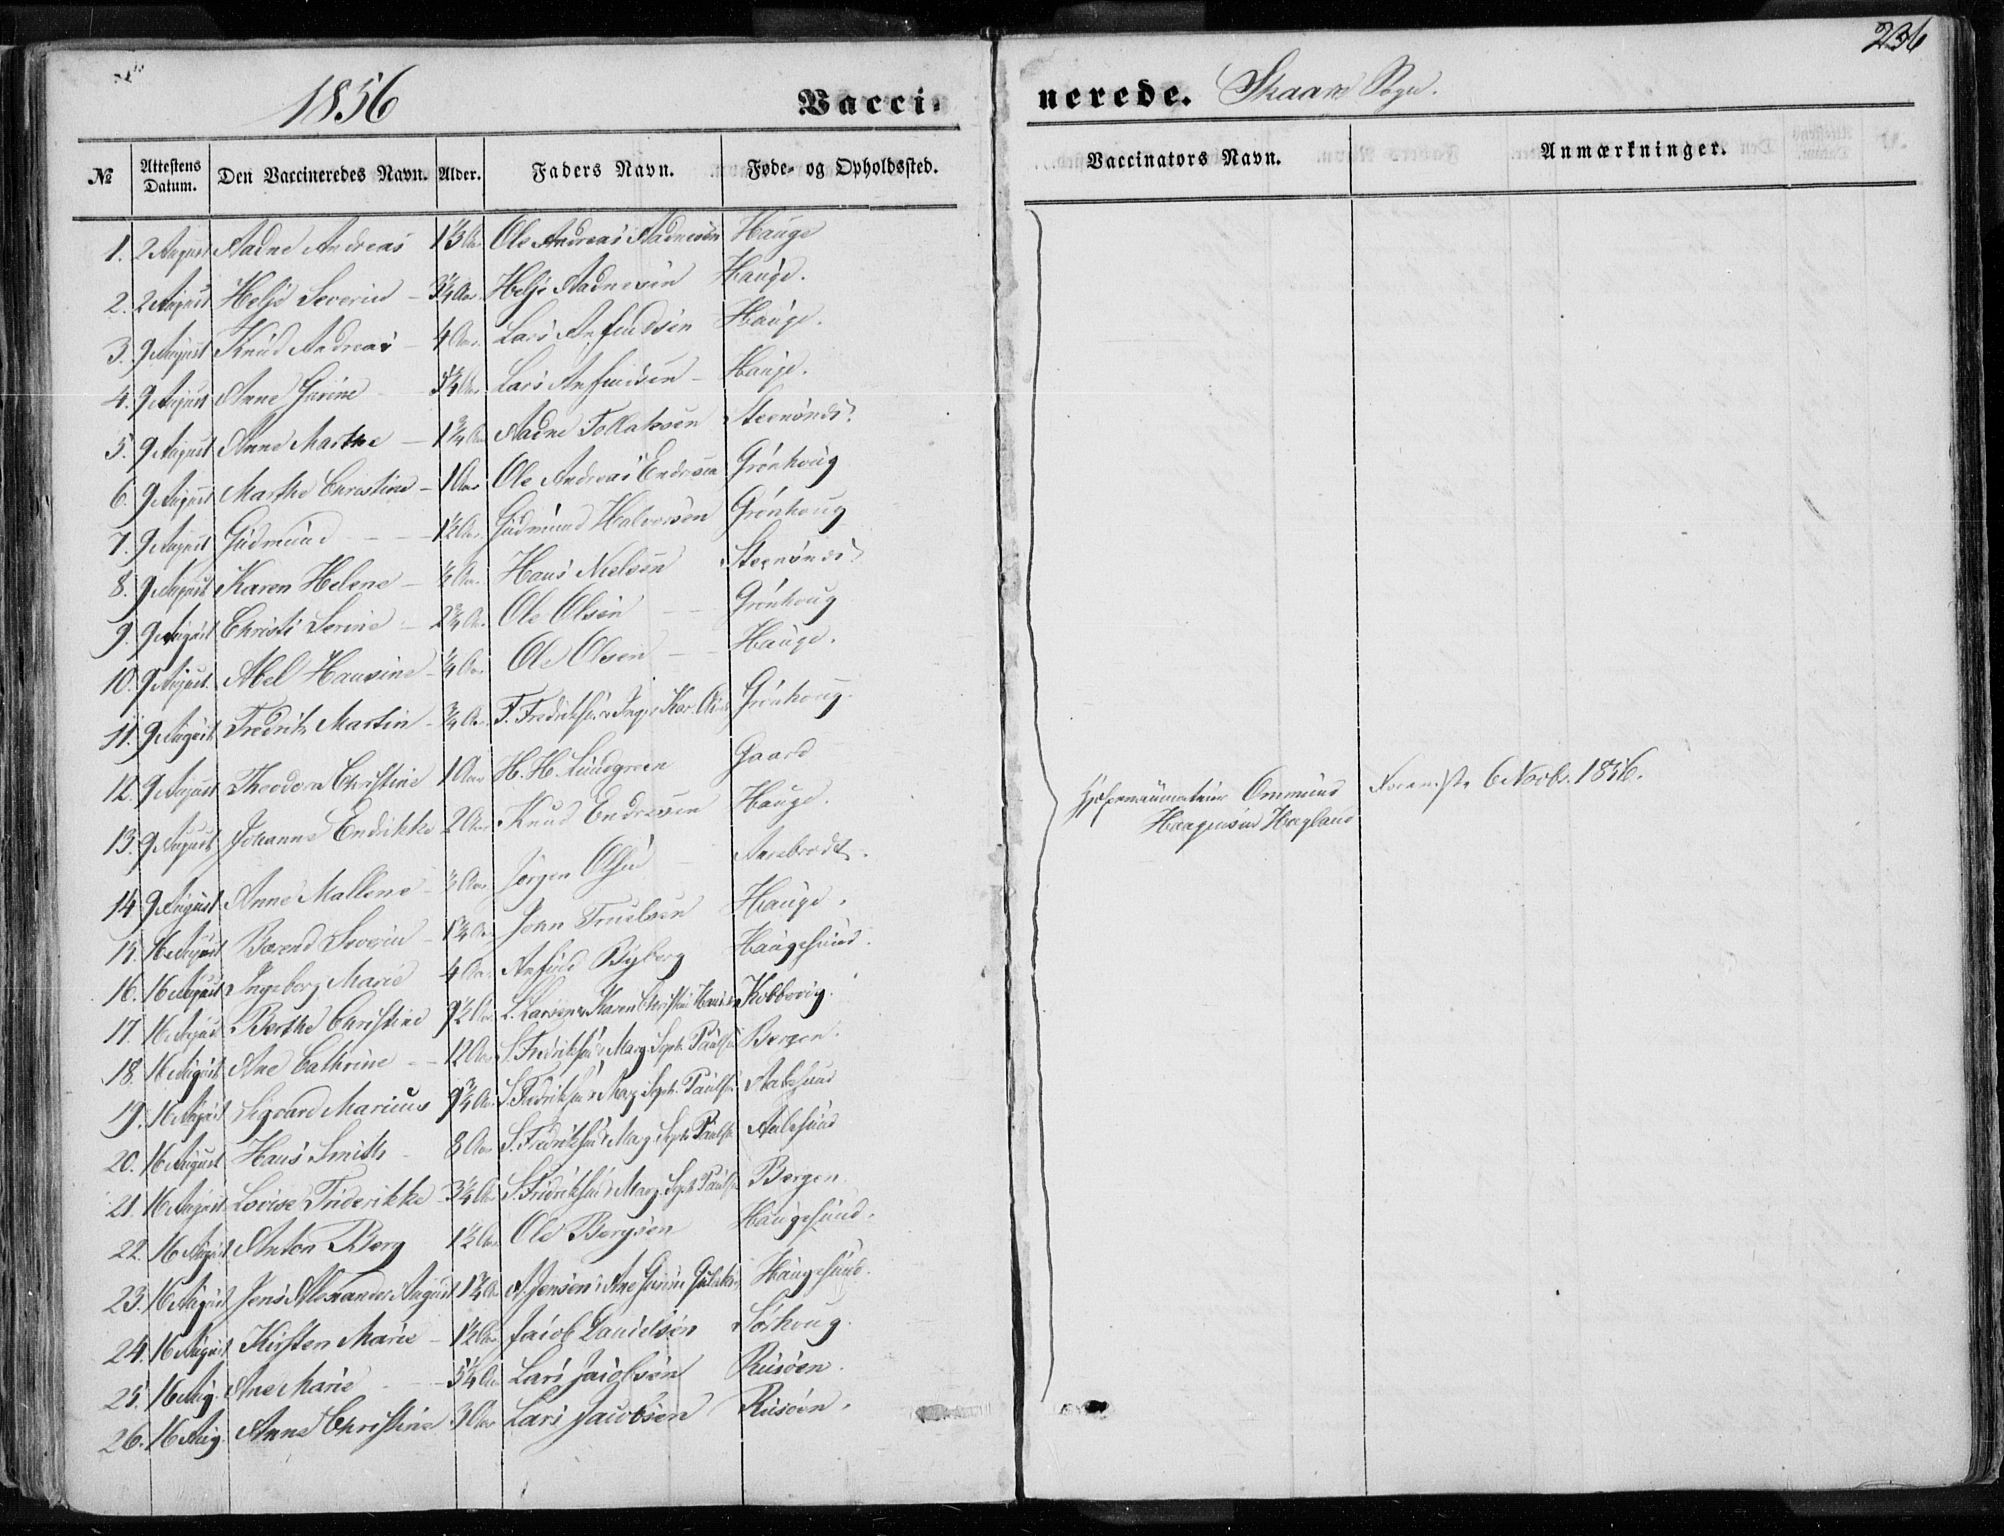 236
1856 Vaccinerede. Skaare Sogn.
№ Attestens Datum. Den Vaccineredes Navn. Alder. Faders Navn. Føde- og Opholdssted. Vaccinators Navn. Anmærkninger.
1. 2 August Aadne Andreas 1⅓ Aar Ole Andreas Aadnesen Hauge
2. 2 August Helje Severin - Aar Helje Aadnesen Hauge.
3. 9 August Knud Andreas - 4 Aar. Lars Anfindsen Hauge.
4. 9 August Anne Gurine Aar Lars Anfindsen - Hauge.
5. 9 August Anne Marthe - 1¾ Aar Aadne Tollaksen
6. 9 August Marthe Christine - 1 Aar Ole Andreas Endresen Grønhoug
7. 9 August Gudmund - - - 1½ Aar. Gudmund Halvorsen Grønhoug
8. 9 August Karen Helene - Aar. Hans Nielsen
9. 9 August Christi Serine - 2¾ Aar. Ole Olsen - - Grønhoug
10. 9 August. Abel Hansine - ¼ Aar. Ole Olsen - - Hauge.
11. 9 August Fredrik Martin - ¾ Aar. F. Fredriksen & Inger Kar. Grønhoug.
12. 9 August Theodora Christine 1 Aar H. H. Lundgreen Gaard
13. 9 August Johanne Endrikke 2 Aar. Knud Endresen Hauge.
Hjelpevaccinateur Ommund Foreviist 6 Novbr. 1856.
Haagensen Hagland
14. 9 August Anne Mallene - ½ Aar. Jørgen Olsen -
15. 16 August Berend Severin - 1¾ Aar John Truelsen Hauge.
16. 16 August Ingeborg Marie 4 Aar. Anfind Byberg Haugesund.
17. 16 August Berthe Christine 9½ Aar L. Larsen & Karen Christine Kobbevig.
18. 16 August Ane Cathrine - - 12 Aar S. Fredriksen & Marg. Sept. Paulsen Bergen.
19. 16 August Sigvard Marius 9¾ Aar. S. Fredriksen & Marg. Sept. Paulsen Aalesund
20. 16 August Hans Smith - 8 Aar S. Fredriksen & Marg. Sept. Paulsen Aalesund
21. 16 August Lovise Friderikke 3¼ Aar S. Fredriksen & Marg. Sept. Paulsen Bergen.
22. 16 August Anton Berg 1½ Aar Ole Bergsen Haugesund.
23. 16 August Jens Alexander August 1¾ Aar A. Jensen & Ane Gurine Haugesund.
24. 16 August Kirsten Marie - 1½ Aar Jacob Danielsen Sørhoug.
25. 16 Aug. Ane Marie - - 5¼ Aar Lars Jacobsen Risøen.
26. 16 Aug. Anne Christine 3 Aar Lars Jacobsen Risøen.